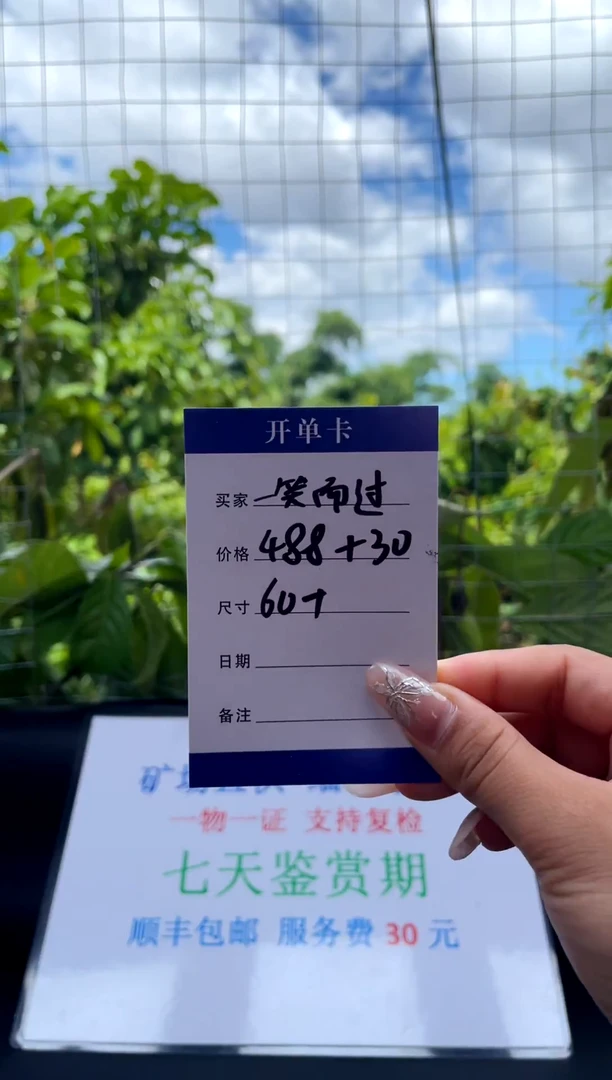 开单卡
买家 一笑而过
价格 488+30
尺寸 60+
日期
备注
一物一证 支持复检
七天鉴赏期
顺丰包邮 服务费 30 元